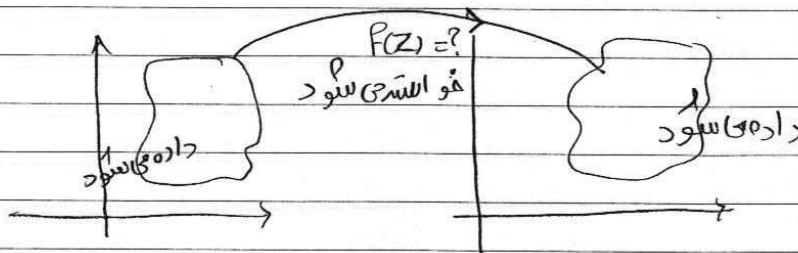 f(z) = ?
خواسته می شود
داده می شود
داده می شود